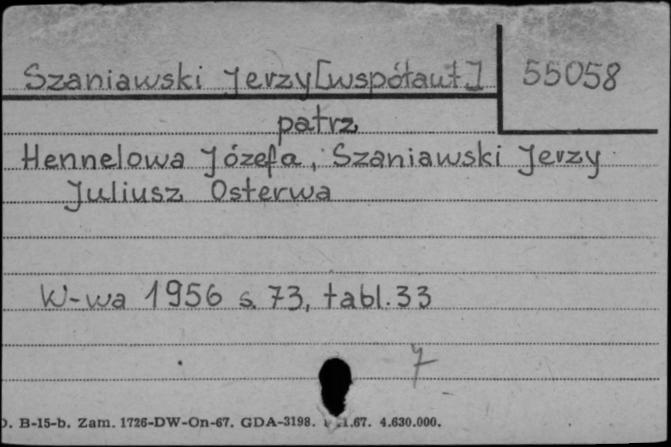 Szaniawski Jerzy [współaut.] 55058
patrz
Hennelowa Józefa, Szaniawski Jerzy
Juliusz Osterwa
W-wa 1956 s. 73, tabl. 33
7
B-15-b. Zam. 1726-DW-On-67. GDA-3198. .67. 4.630.000.